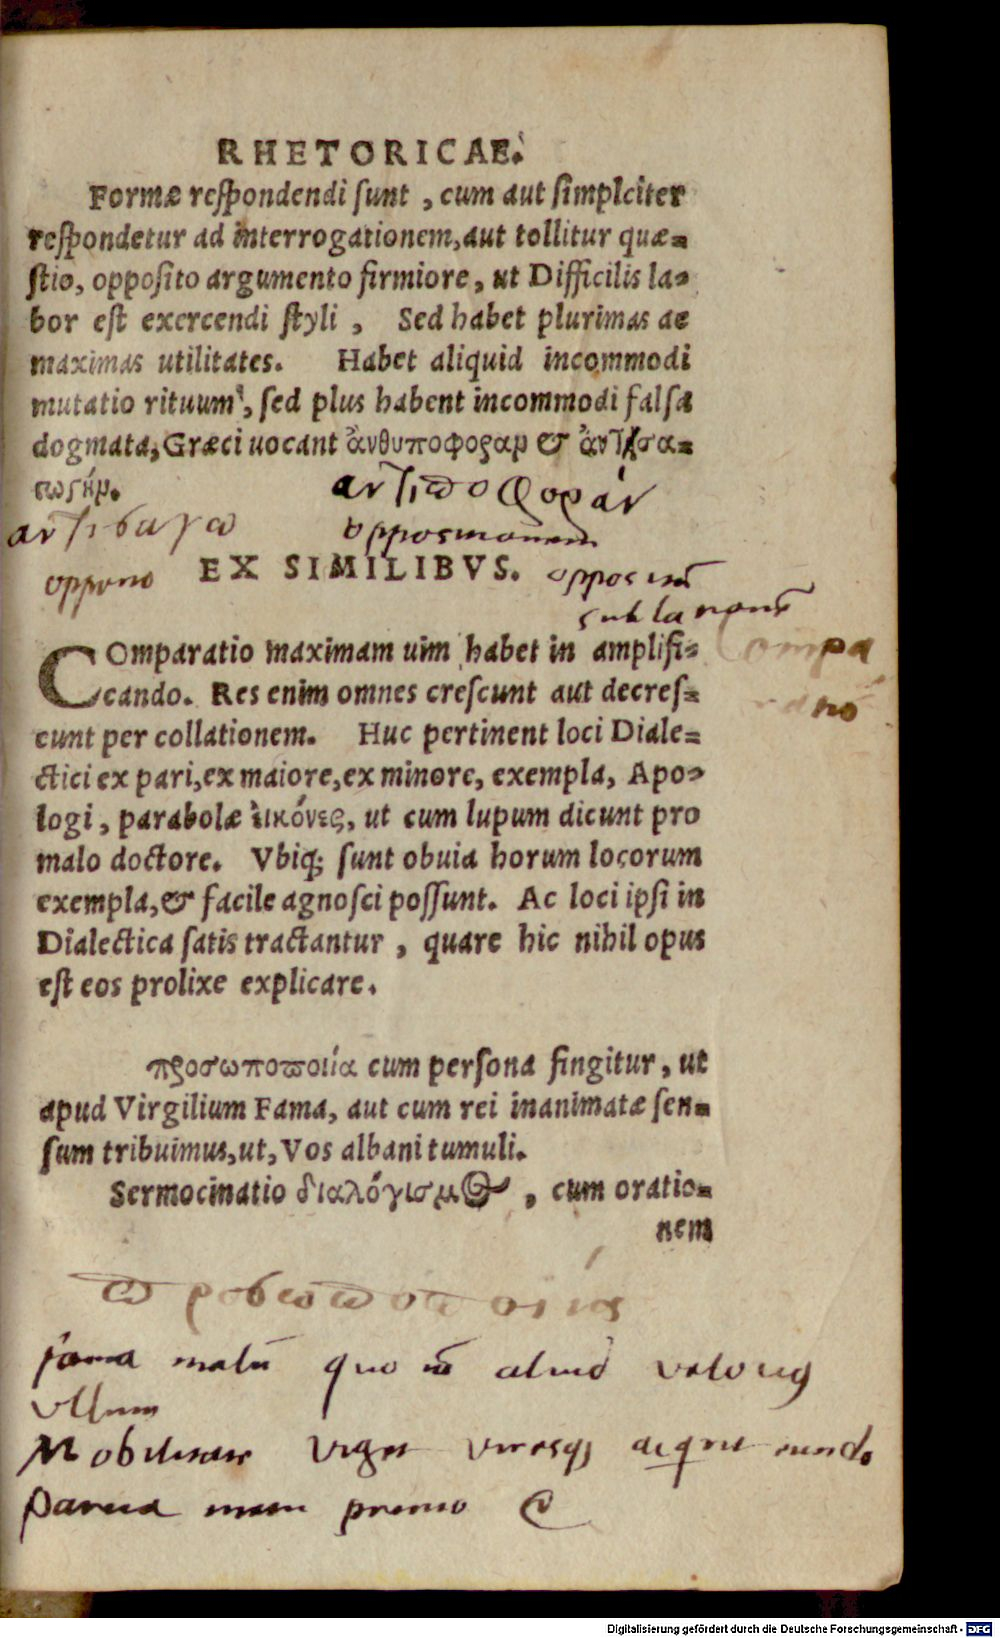 RHETORICAE.
Formæ respondendi sunt, cum aut simplciter
respondetur ad interrogationem, aut tollitur quæ=
stio, opposito argumento firmiore, ut Difficilis la=
bor est exercendi styli, Sed habet plurimas ac
maximas utilitates. Habet aliquid incommodi
mutatio rituum, sed plus habent incommodi falsa
dogmata, Græci uocant ἀνθυποφοραμ &
αντιποφοράν
oppono
EX SIMILIBVS.
Compa
COmparatio maximam uim habet in amplifi=
cando. Res enim omnes crescunt aut decres=
cunt per collationem. Huc pertinent loci Diale=
ctici ex pari, ex maiore, ex minore, exempla, Apo=
logi, parabolæ εικόνες, ut cum lupum dicunt pro
malo doctore. Vbiq; sunt obuia horum locorum
exempla, & facile agnosci possunt. Ac loci ipsi in
Dialectica satis tractantur, quare hic nihil opus
est eos prolixe explicare.
προσωποποιία cum persona fingitur, ut
apud Virgilium Fama, aut cum rei inanimatæ sen=
sum tribuimus, ut, Vos albani tumuli.
Sermocinatio διαλόγισμος, cum oratio=
nem
fama malū quo nō aliud
vllum
Mobilitate viget viresq; acqrit eundo
Parua
Digitalisierung gefördert durch die Deutsche Forschungsgemeinschaft - DFG